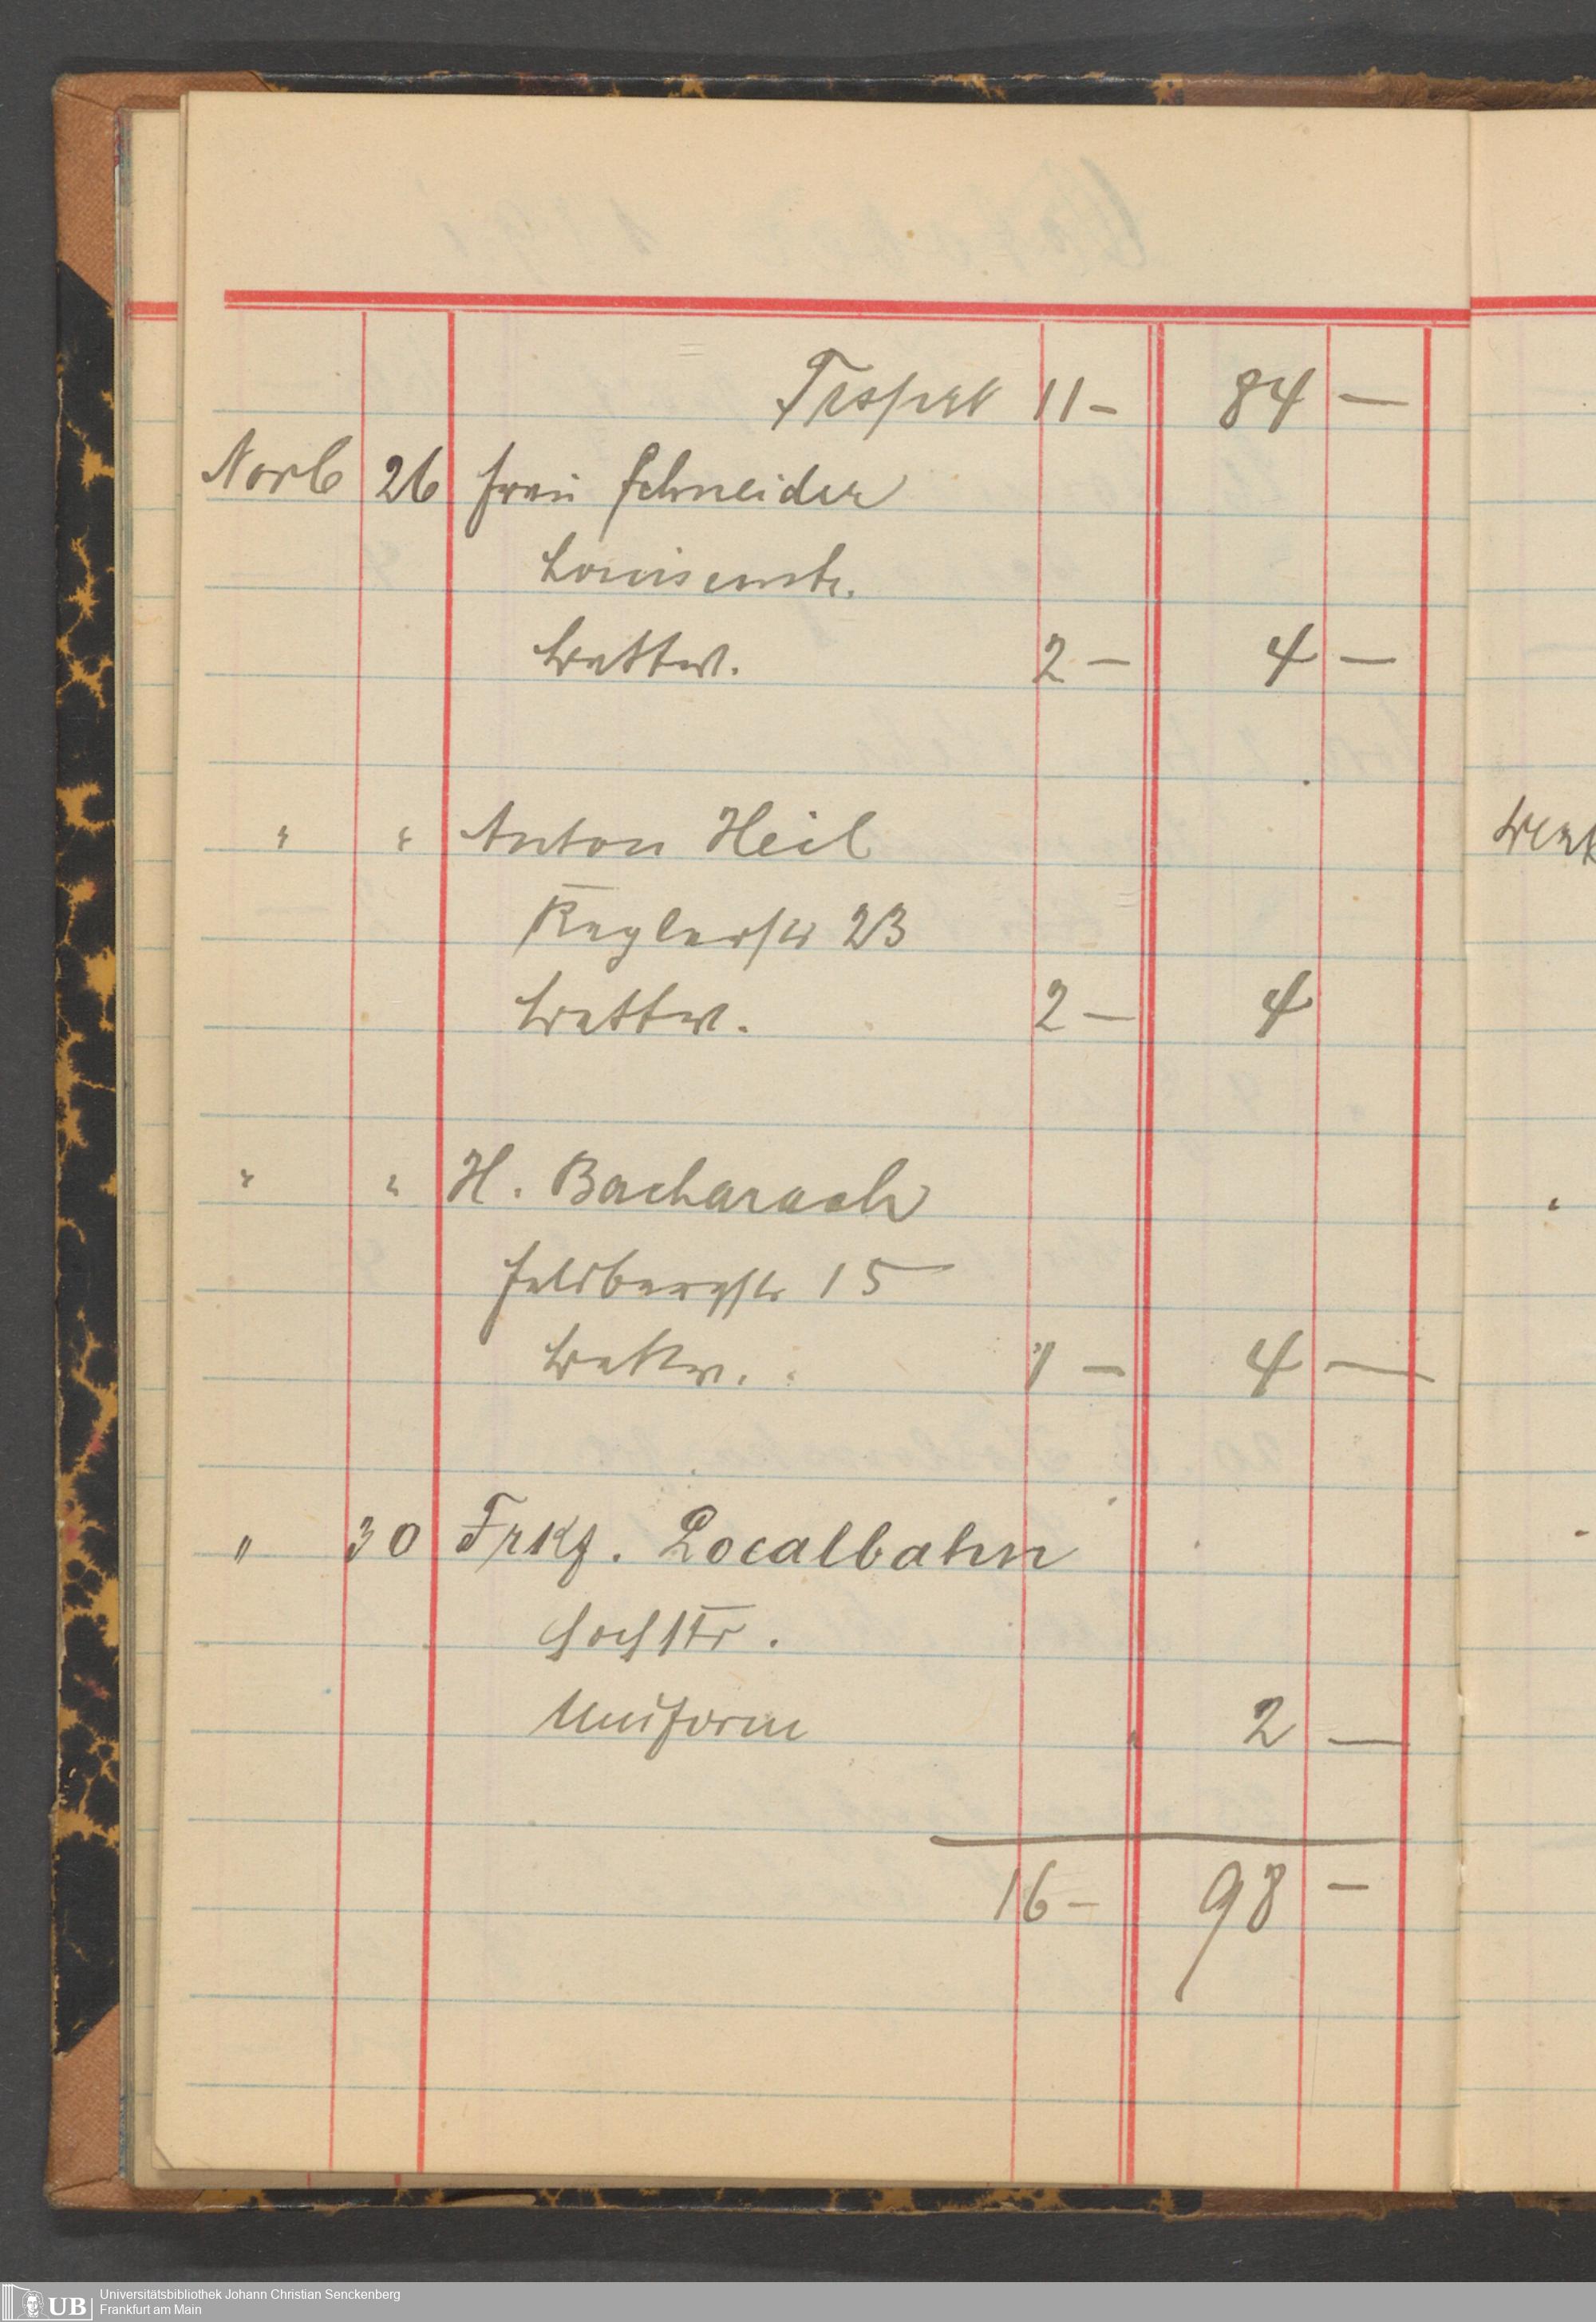 Trsprt 11 - 84 —
Novb 26 Frau Schneider
Louisenstr.
Wattw. 2 — 4 —
" " Anton Heil
Keglerstr 23
Wattw. 2 — 4
" " H. Bacharach
Feldbergstr 15
Wattw. 1 — 4 —
" 30 Frkf. Localbahn
Hochstr.
Uniform " 2 —
16 - 98 —
UB Universitätsbibliothek Johann Christian Senckenberg
Frankfurt am Main